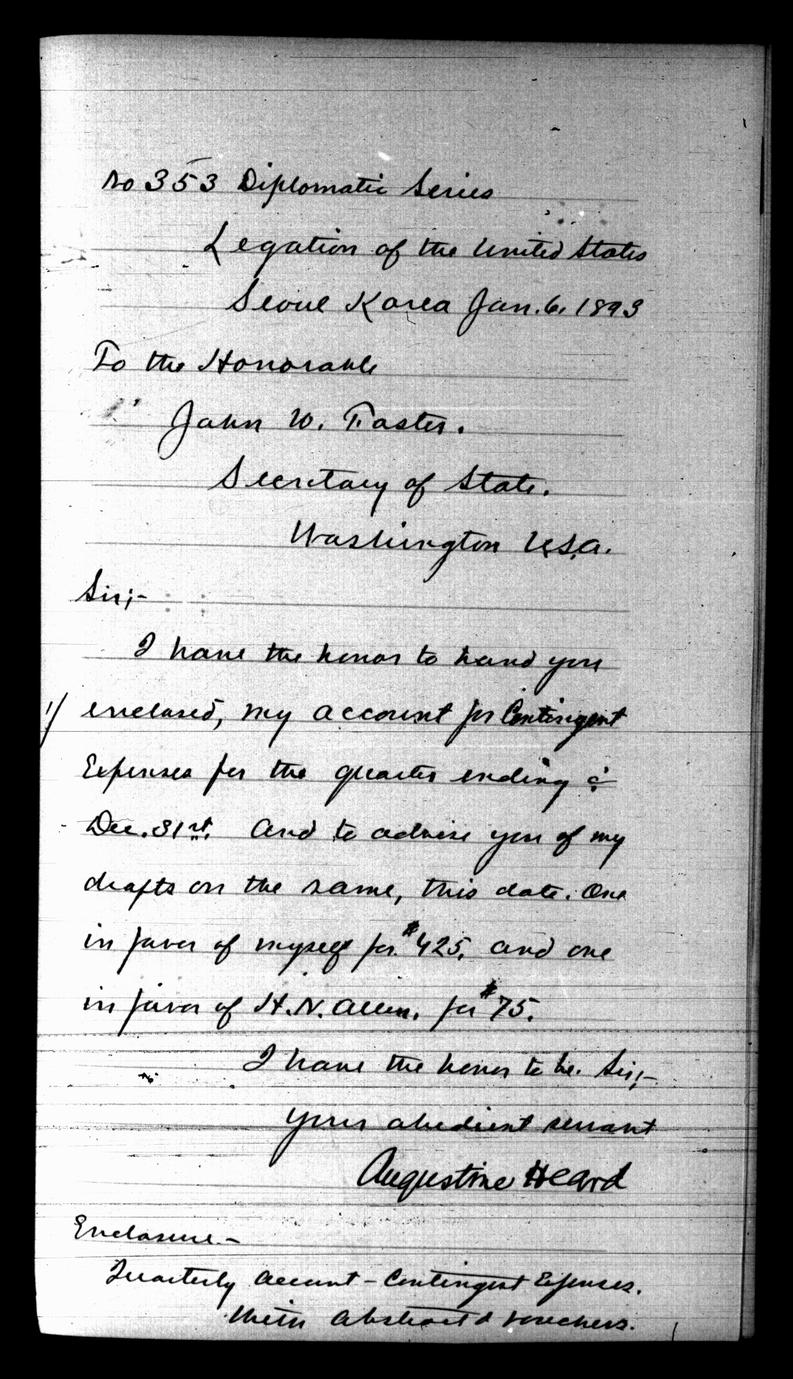 No 353 Diplomatic Series
Legation of the United States
Seoul Korea Jan. 6. 1893
To the Honorable
John W. Foster.
Secretary of State.
Washington U.S.A.
Sir;-
I have the honor to hand you
enclosed, my account for Contingent
Expenses for the quarter ending
Dec. 31st. And to advise you of my
drafts on the same, this date. One
in favor of myself for $425. and one
in favor of H.N. Allen. for $75.
I have the honor to be. Sir;-
Your obedient servant
Augustine Heard
Enclosure.-
Quarterly Account - Contingent Expenses.
With Abstract & vouchers.